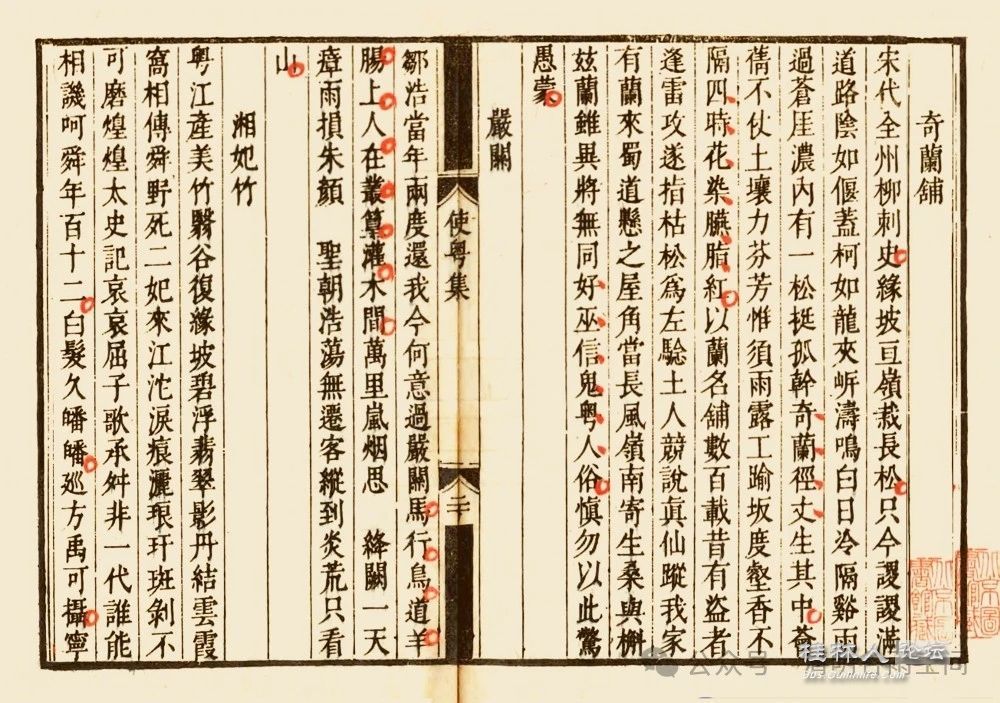 奇蘭舖
宋代全州柳刺史緣坡亘嶺栽長松只今謖謖滿
道路陰如偃蓋柯如龍夾岍濤鳴白日冷隔谿雨
過蒼厓濃內有一松挺孤幹奇蘭徑丈生其中蒼
蒨不仗土壤力芬芳惟須雨露工踰坂度壑香不
隔四時花染臙脂紅以蘭名舖數百載昔有盜者
逢雷攻遂指枯松爲左驗土人競說眞仙蹤我家
有蘭來蜀道懸之屋角當長風嶺南寄生桑與槲
玆蘭雖異將無同好巫信鬼粵人俗慎勿以此驚
愚蒙
嚴關
使粵集
二十
鄒浩當年兩度還我今何意過嚴關馬行鳥道羊
腸上人在叢篁灌木間萬里嵐烟思 絳闕一天
瘴雨損朱顏 聖朝浩蕩無遷客縱到炎荒只看
山
湘妃竹
粵江產美竹翳谷復緣坡碧浮翡翠影丹結雲霞
窩相傳舜野死二妃來江沱淚痕灑琅玕斑剝不
可磨煌煌太史記哀哀屈子歌承舛非一代誰能
相譏呵舜年百十二白髮久皤皤廵方禹可攝寧
公众号
桂林人论坛